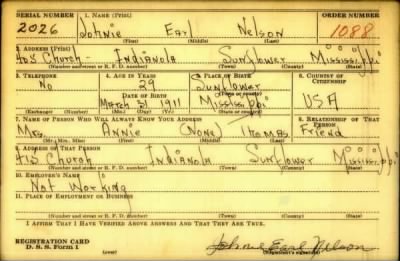 SERIAL NUMBER 1. NAME (Print) ORDER NUMBER
2026 Johnie Earl Nelson 1088
(First) (Middle) (Last)
2. ADDRESS (Print)
Church - Indianola Sunflower Mississippi
(Number and street or R. F. D. number) (Town) (County) (State)
3. TELEPHONE 4. AGE IN YEARS 5. PLACE OF BIRTH 6. COUNTRY OF CITIZENSHIP
No 29 Sunflower
(Town or county)
DATE OF BIRTH
March 31 1911 Mississippi USA
(Exchange) (Number) (Mo.) (Day) (Yr.) (State or country)
7. NAME OF PERSON WHO WILL ALWAYS KNOW YOUR ADDRESS 8. RELATIONSHIP OF THAT PERSON
Mrs. Annie (None) Thomas Friend
(Mr., Mrs., Miss) (First) (Middle) (Last)
9. ADDRESS OF THAT PERSON
413 Church Indianola Sunflower Mississippi
(Number and street or R. F. D. number) (Town) (County) (State)
10. EMPLOYER'S NAME
Not Working
11. PLACE OF EMPLOYMENT OR BUSINESS
(Number and street or R. F. D. number) (Town) (County) (State)
I AFFIRM THAT I HAVE VERIFIED ABOVE ANSWERS AND THAT THEY ARE TRUE.
REGISTRATION CARD
D. S. S. Form 1 Johnie Earl Nelson
(Registrant's signature)